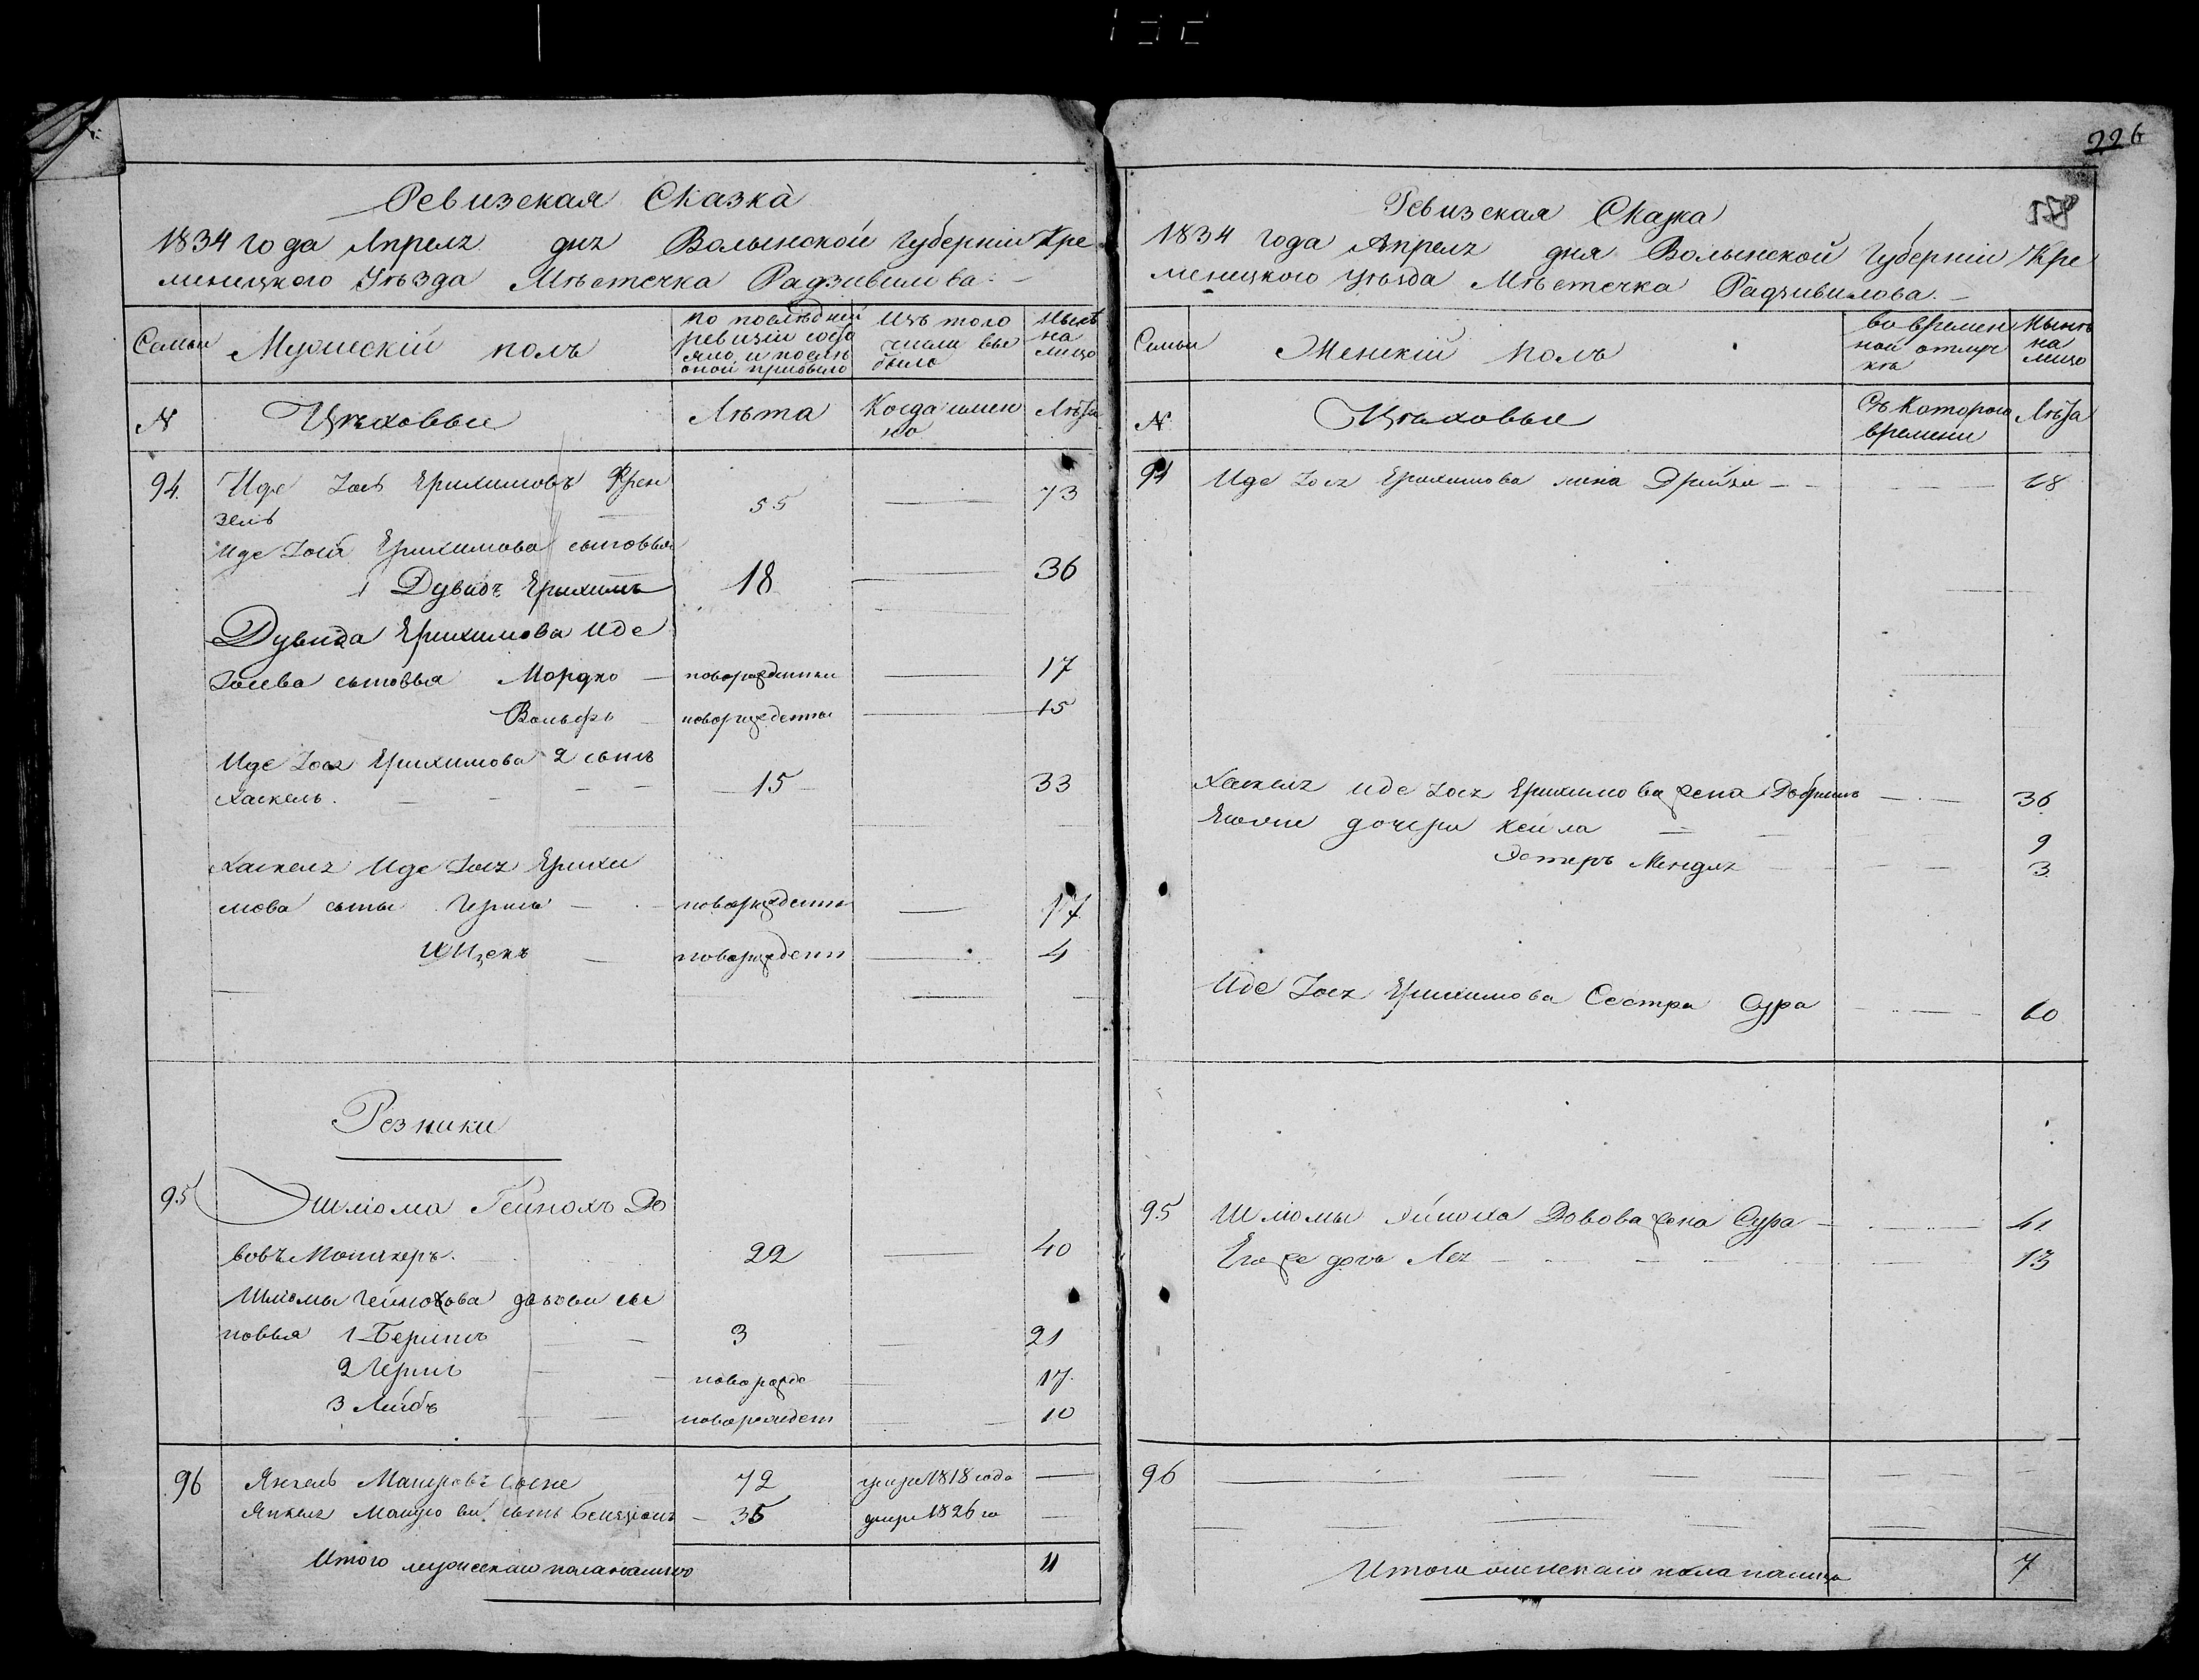 226
Ревизская Сказка
1834 года Апреля дня Волынской Губерніи Кре
менецкого Уѣзда Мѣстечка Радзивилова. –
Семьи
Мужескій полъ
По последней ревизіи состояло и послѣ оной прибыло
Изъ того числа выбыло
Нынѣ на лицо
N
Цѣховые
Лѣта
Когда имен
но
Лѣта
94. Иде Іось Ерихимовъ Френ
зель 55 — 73
Иде Іося Ерихимова сыновья
1 Дувидъ Ерихимъ 18 — 36
Дувида Ерихимова Иде
Іосева сыновья Мордко — новорожденны — 17
Вольфъ — новорожденны — 15
Иде Іося Ерихимова 2 сынъ
Хаскель. — 15 — 33
Хаскеля Иде Іося Ерихи
мова сыны Гершъ — новорожденны — 17
Ицекъ — новорожденн — 4
Резники
95 Шлюма Гейнохъ До
вовъ 22 — 40
Шлюмы Гейнохова Довови сы
новья 1 Беришъ — 3 — 21
2 Гершъ — новорожде — 17
3 Лейбъ — новорожден — 10
96 Янкель 72 умре 1818 года —
Янкеля сынъ Бенціонъ – 35 умре 1826 го —
Итого мужескаго пола налицо 11
Ревизская Сказка
1834 года Апреля дня Волынской Губерніи Кре
менецкого уѣзда Мѣстечка Радзивилова. –
Семьи
Женскій полъ
Во времен
ной отлуч
кѣ
Нынѣ
на
лицо
N
Цѣховые
Съ которого
времени
Лѣта
94 Иде Іося Ерихимова жена — — 68
Хаскеля Иде Іося Ерихимова жена — 36
Еіоже дочери Кейла — 9
Эстеръ Мендля — 3
Иде Іося Ерихимова Сестра Сура — 60
95 Шлюмы Гейноха Довова жона Сура — 41
Его же дочь Лея — 13
96 — — —
Итого женскаго пола налицо 7